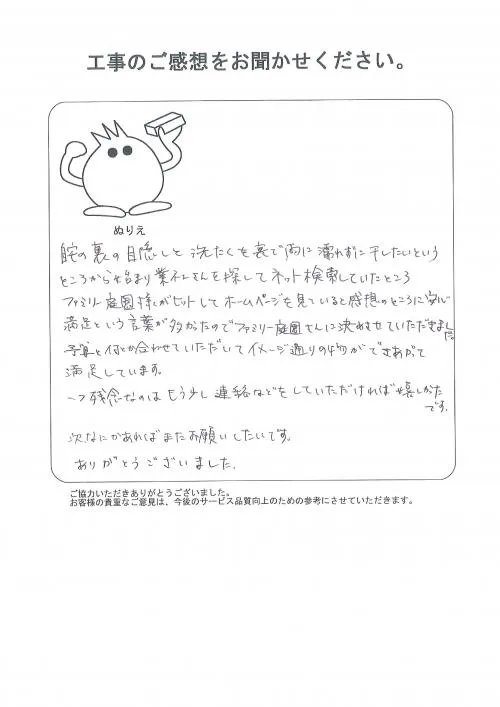 工事のご感想をお聞かせください。
ぬりえ
庭の裏の目隠しと洗たくも裏で雨に濡れずに干したいという
ところから始まり業者さんを探してネット検索していたところ
ファミリー庭園様がヒットしてホームページを見ていると感想のところに
満足という言葉が多かったのでファミリー庭園さんに決めさせていただきました
予算と何とか合わせていただいてイメージ通りの物ができあがて
満足しています。
→残念なのはもう少し連絡などをしていただければ嬉しかった
です。
次なにかあればまたお願いしたいです。
ありがとうございました。
ご協力いただきありがとうございました。
お客様の貴重なご意見は、今後のサービス品質向上のための参考にさせていただきます。